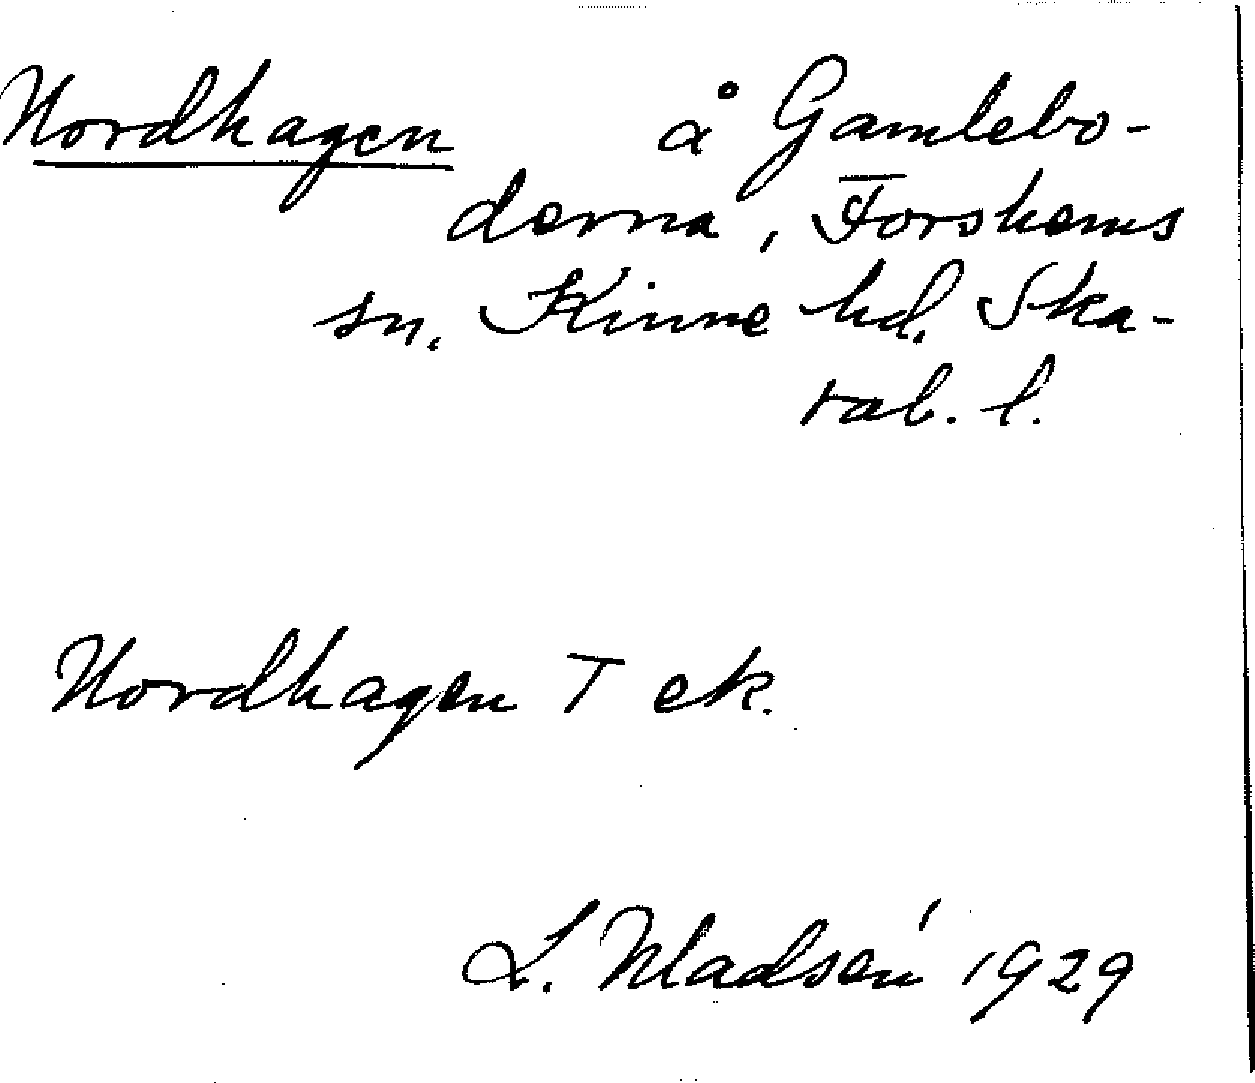 Nordhagen å Gamlebo-
derna, Forshems
sn. Kinne hd. Ska-
rab. l.
Nordhagen T ek.
L. Madsén 1929